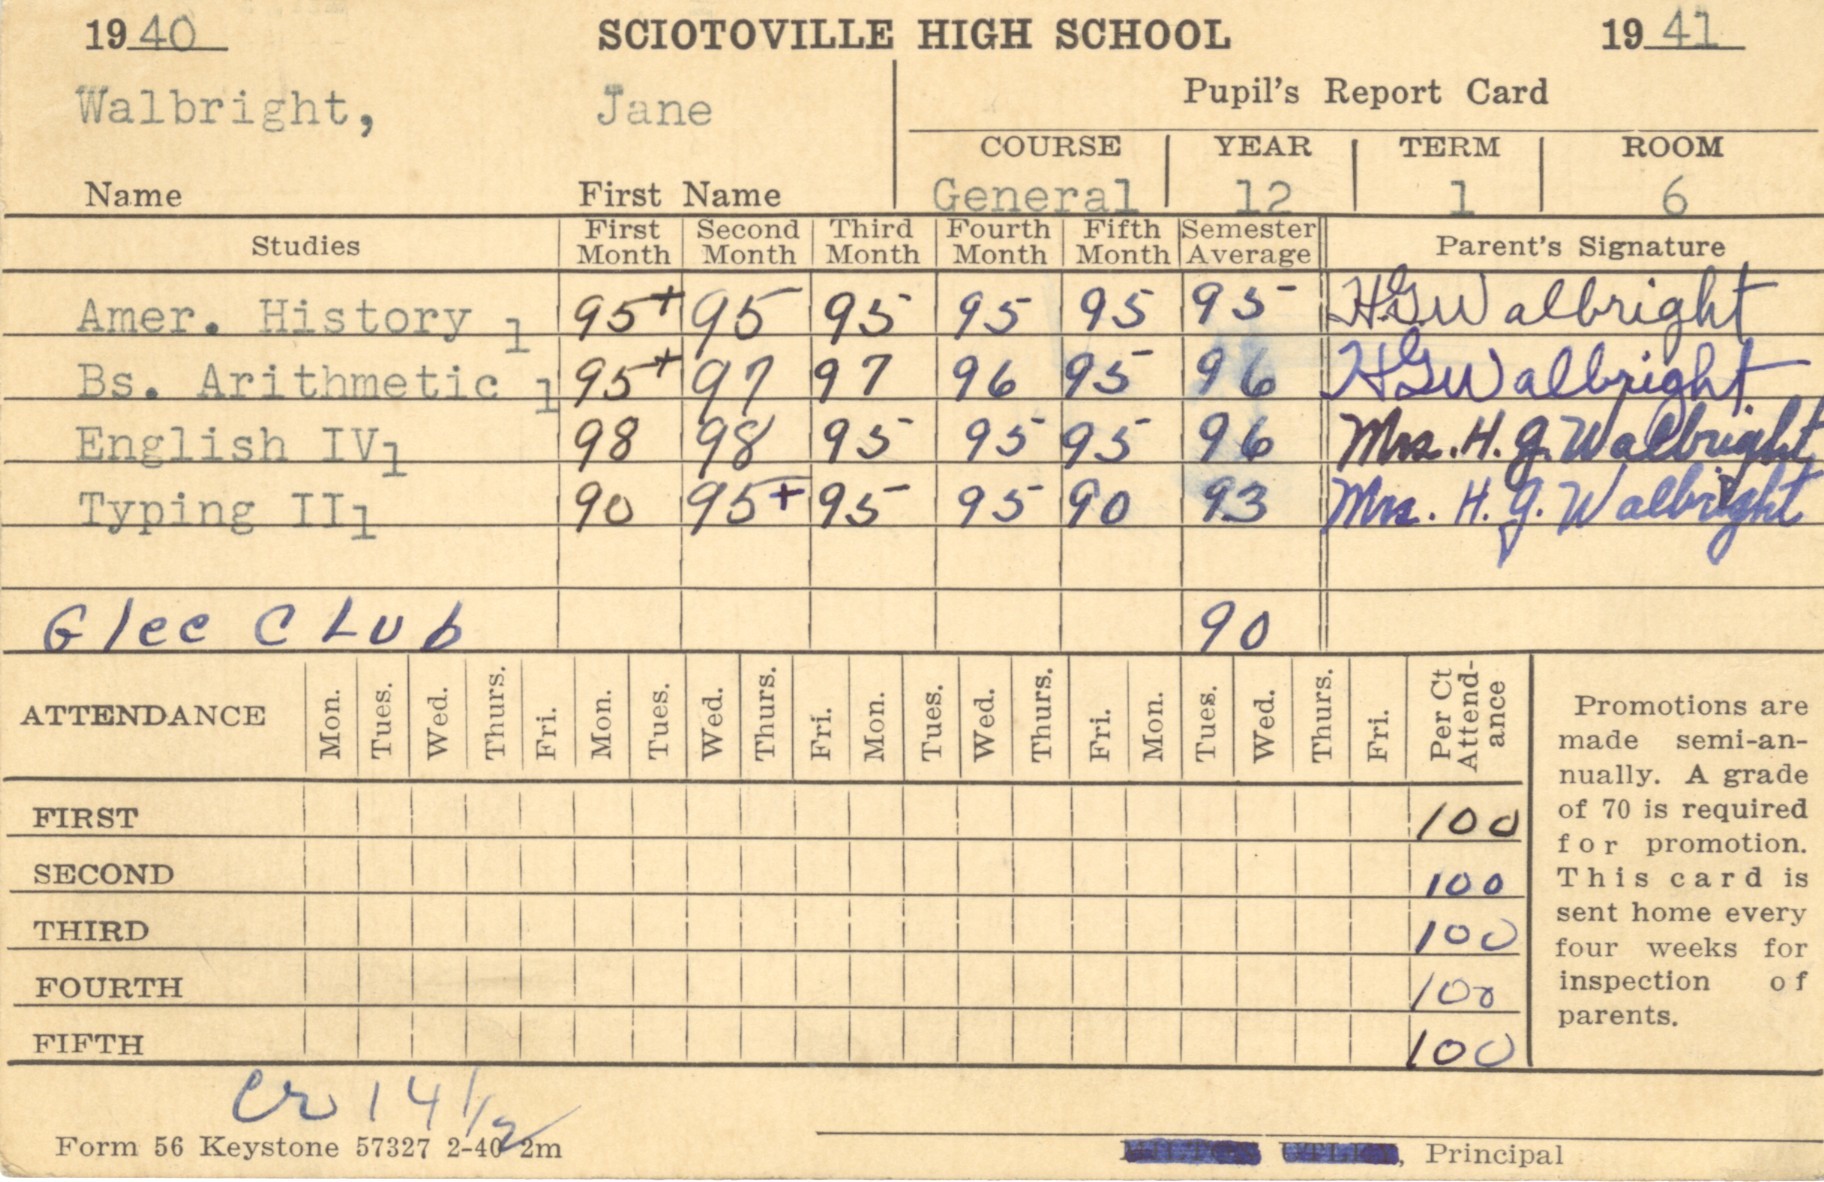 1940 SCIOTOVILLE HIGH SCHOOL 1941
Walbright, Jane
Name First Name
Pupil's Report Card
COURSE YEAR TERM ROOM
General 12 1 6
Studies First Month Second Month Third Month Fourth Month Fifth Month Semester Average Parent's Signature
Amer. History 1 95+ 95 95 95 95 95 H G Walbright
Bs. Arithmetic 1 95+ 97 97 96 95 96 H G Walbright
English IV1 98 98 95 95 95 96 Mrs. H. G. Walbright
Typing II1 90 95+ 95 95 90 93 Mrs. H. G. Walbright
Glee CLub 90
ATTENDANCE Mon. Tues. Wed. Thurs. Fri. Mon. Tues. Wed. Thurs. Fri. Mon. Tues. Wed. Thurs. Fri. Mon. Tues. Wed. Thurs. Fri. Per Ct Attend-ance
FIRST 100
SECOND 100
THIRD 100
FOURTH 100
FIFTH 100
Promotions are
made semi-an-
nually. A grade
of 70 is required
for promotion.
This card is
sent home every
four weeks for
inspection of
parents.
Cr 14 1/2
Form 56 Keystone 57327 2-40 2m
, Principal